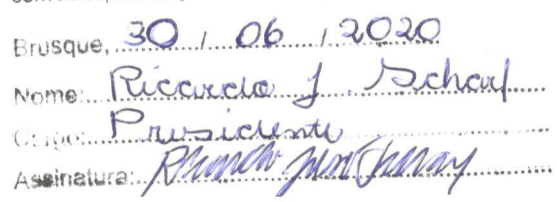 Brusque, 30 / 06 / 2020
Nome: Ricardo J. Scharf
Cargo: Presidente
Assinatura: